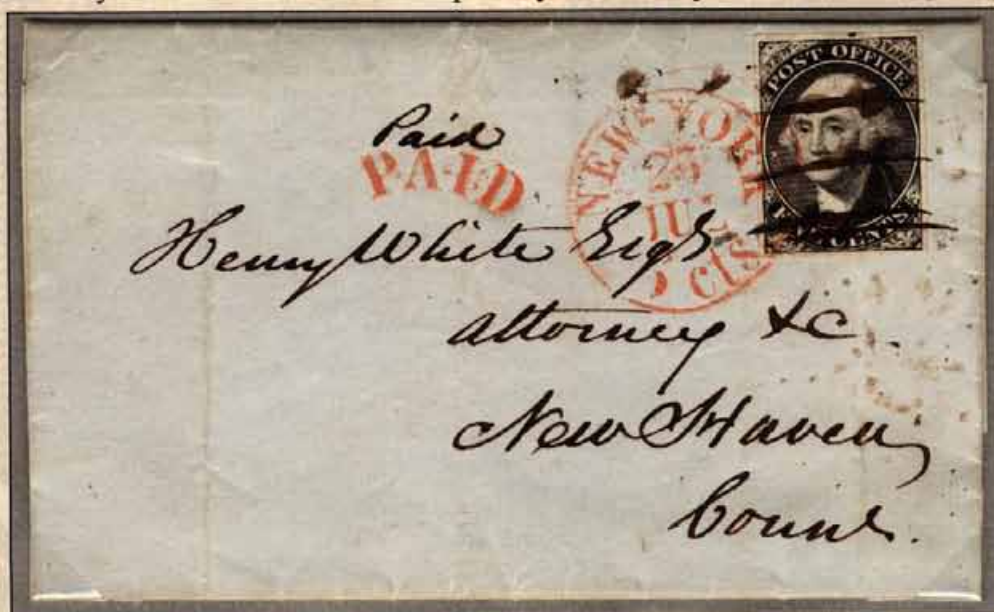 POST OFFICE
Paid
PAID
NEW YORK
25
JUL
CTS
Henry White Esqr
Attorney &c.
New Haven,
Connt.